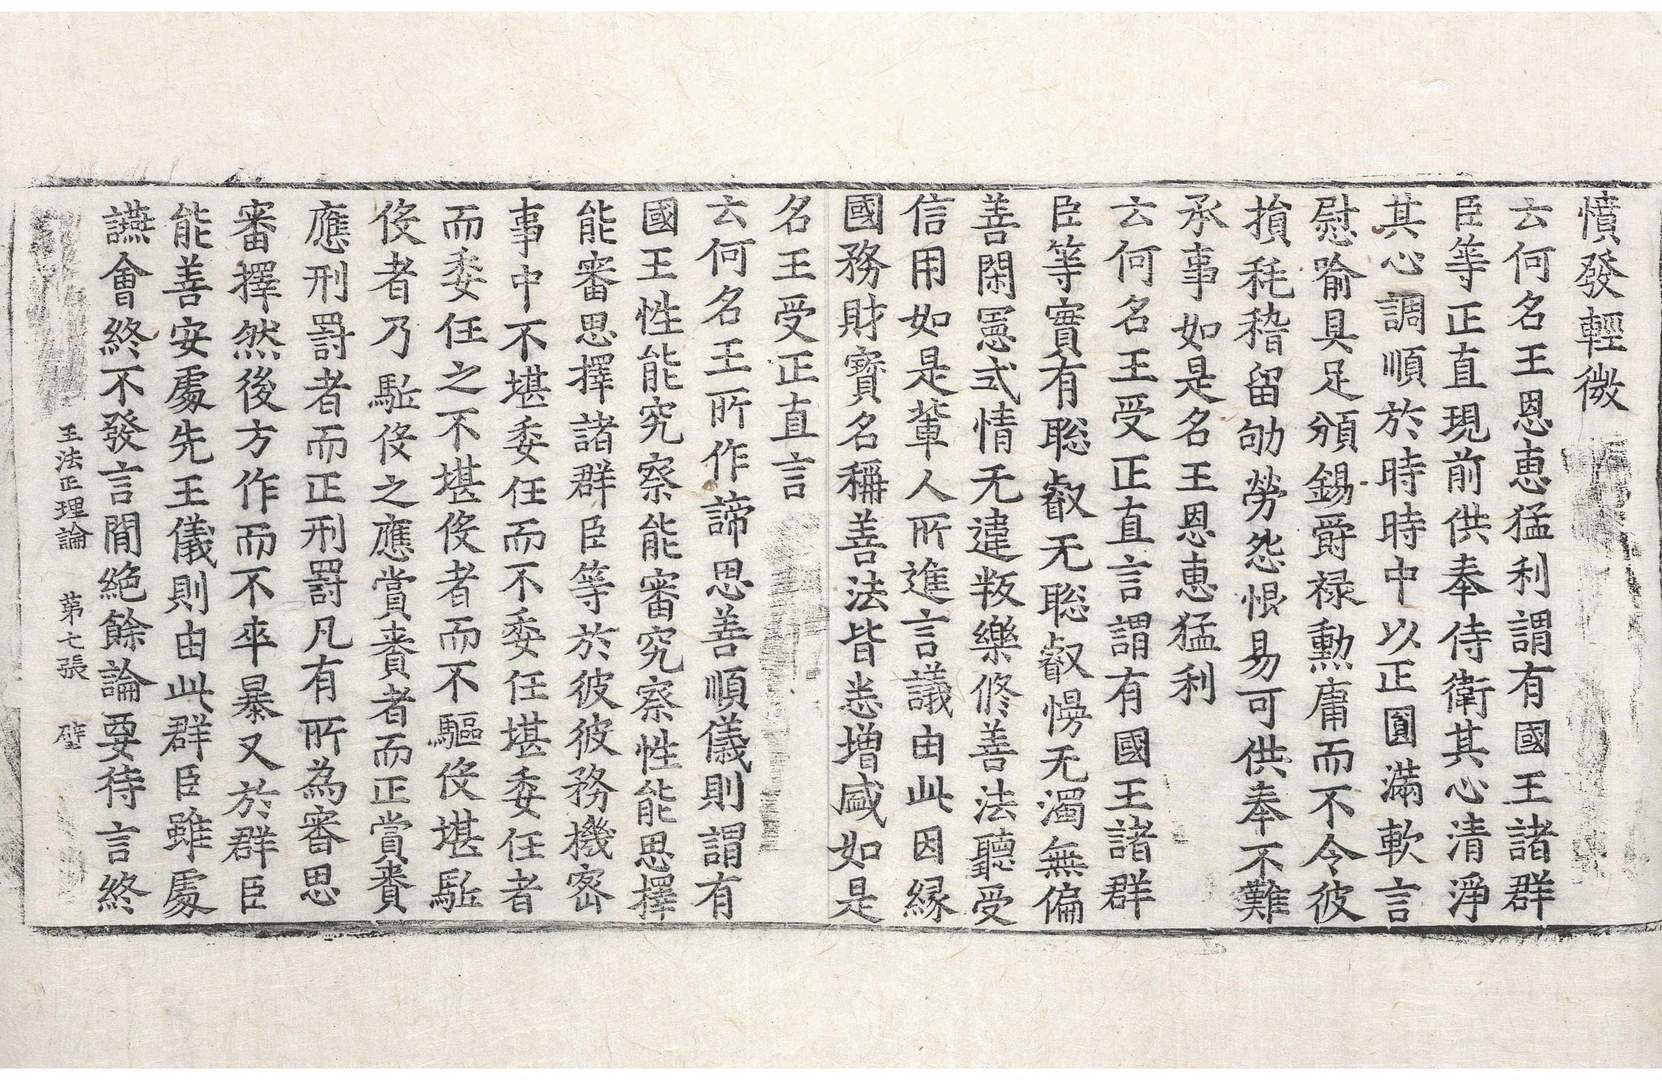 憤發輕微
云何名王恩恵猛利謂有國王諸群
臣等正直現前供奉侍衛其心清淨
其心調順於時時中以正圓滿軟言
慰喩具足頒錫爵禄勲庸而不令彼
損秏稽留劬勞怨恨易可供奉不難
承事如是名王恩恵猛利
云何名王受正直言謂有國王諸群
臣等實有聡叡无聡叡慢无濁無偏
善閑憲式情无違叛樂修善法聽受
信用如是輩人所進言議由此因縁
國務財寶名稱善法皆悉增盛如是
名王受正直言
云何名王所作諦思善順儀則謂有
國王性能究察能審究察性能思擇
能審思擇諸群臣等於彼彼務機密
事中不堪委任而不委任堪委任者
而委任之不堪伇者而不驅伇堪駈
伇者乃駈伇之應賞賚者而正賞賚
應刑罰者而正刑罰凡有所為審思
審擇然後方作而不卒暴又於群臣
能善安處先王儀則由此群臣雖處
讌會終不發言間絶餘論要待言終
王法正理論　第七張　璧